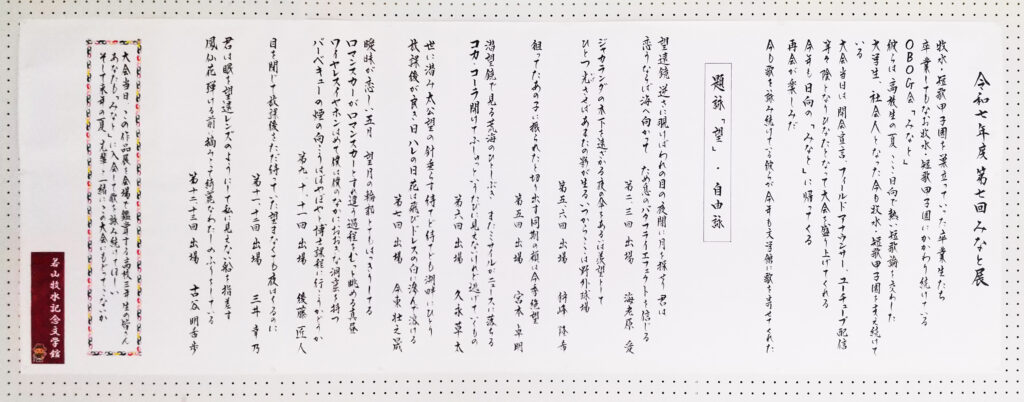 令和七年度 第七回 みなと展
牧水・短歌甲子園を巣立っていった卒業生たち
卒業してもなお牧水・短歌甲子園にかかわり続けている
OBOG会「みなと」
彼らは高校生の夏、ここ日向で熱い短歌論を交わした
大学生、社会人となった今も牧水・短歌甲子園を支え続けて
いる
大会当日は開会宣言、フィールドアナウンサー、ユーチューブ配信
等々 陰となりひなたとなって大会を盛り上げてくれる
今年も日向の「みなと」に帰ってくる
再会が楽しみだ
今も歌を詠み続けている彼らが今年も文学館に歌を寄せてくれた
題詠「望」・自由詠
望遠鏡 逆さに覗けばわれの目の夜間に月を探す 君は
恋うならば海へ向かって ため息のバタフライエフェクトを信じる
第二、三回 出場 海老原 愛
ジャカランダの木下を遠ざかる夜の傘をあるいは羨望として
ひとつ光させばあまたの影が生るいつかここは野外球場
第五、六回 出場 狩峰 隆希
狙ってたあの子に振られたと切り出す同期 顔は今季絶望
第五回 出場 宮本 卓明
潜望鏡で見る荒海のひとしぶき またミサイルがニースに落ちる
コカ・コーラ開けてふしゅっと、うたびとに見えないけれど逃げていくもの
第六回 出場 久永 草太
世に潜み太公望の針垂らす 待てど待てども湖畔にひとり
放課後が貴き日 ハレの日 花は飛びドレスの白に滲んで泣ける
第七回 出場 金東 壮之眞
曖昧が恋し、五月 望月の輪郭とてもはっきりしてる
ロマンスカーがロマンスカーとすれ違う過程をむっと眺める真昼
ワイヤレスイヤホンはめて僕は僕のなかにおおきな洞窟を持つ
バーベキューの煙の向こうはぼやぼやと博士課程に行こうかどうか
第九、十、十一回 出場 後藤 匠人
目を閉じて放課後をただ待ってた 望まなくても夜はくるのに
第十一、十二回 出場 三井 幸乃
君は眼を望遠レンズのようにして私に見えない船を指差す
鳳仙花 弾ける前に摘みとって綺麗なわたしのふりをしている
第十二、十三回 出場 古谷 明吾歩
大会当日、この作品展を会場で鑑賞する高校三年生の皆さん
あなたも「みなと」に入会して歌を詠み続けてほしい
そして来年の夏、先輩と一緒にこの大会にもどってこないか
若山牧水記念文学館